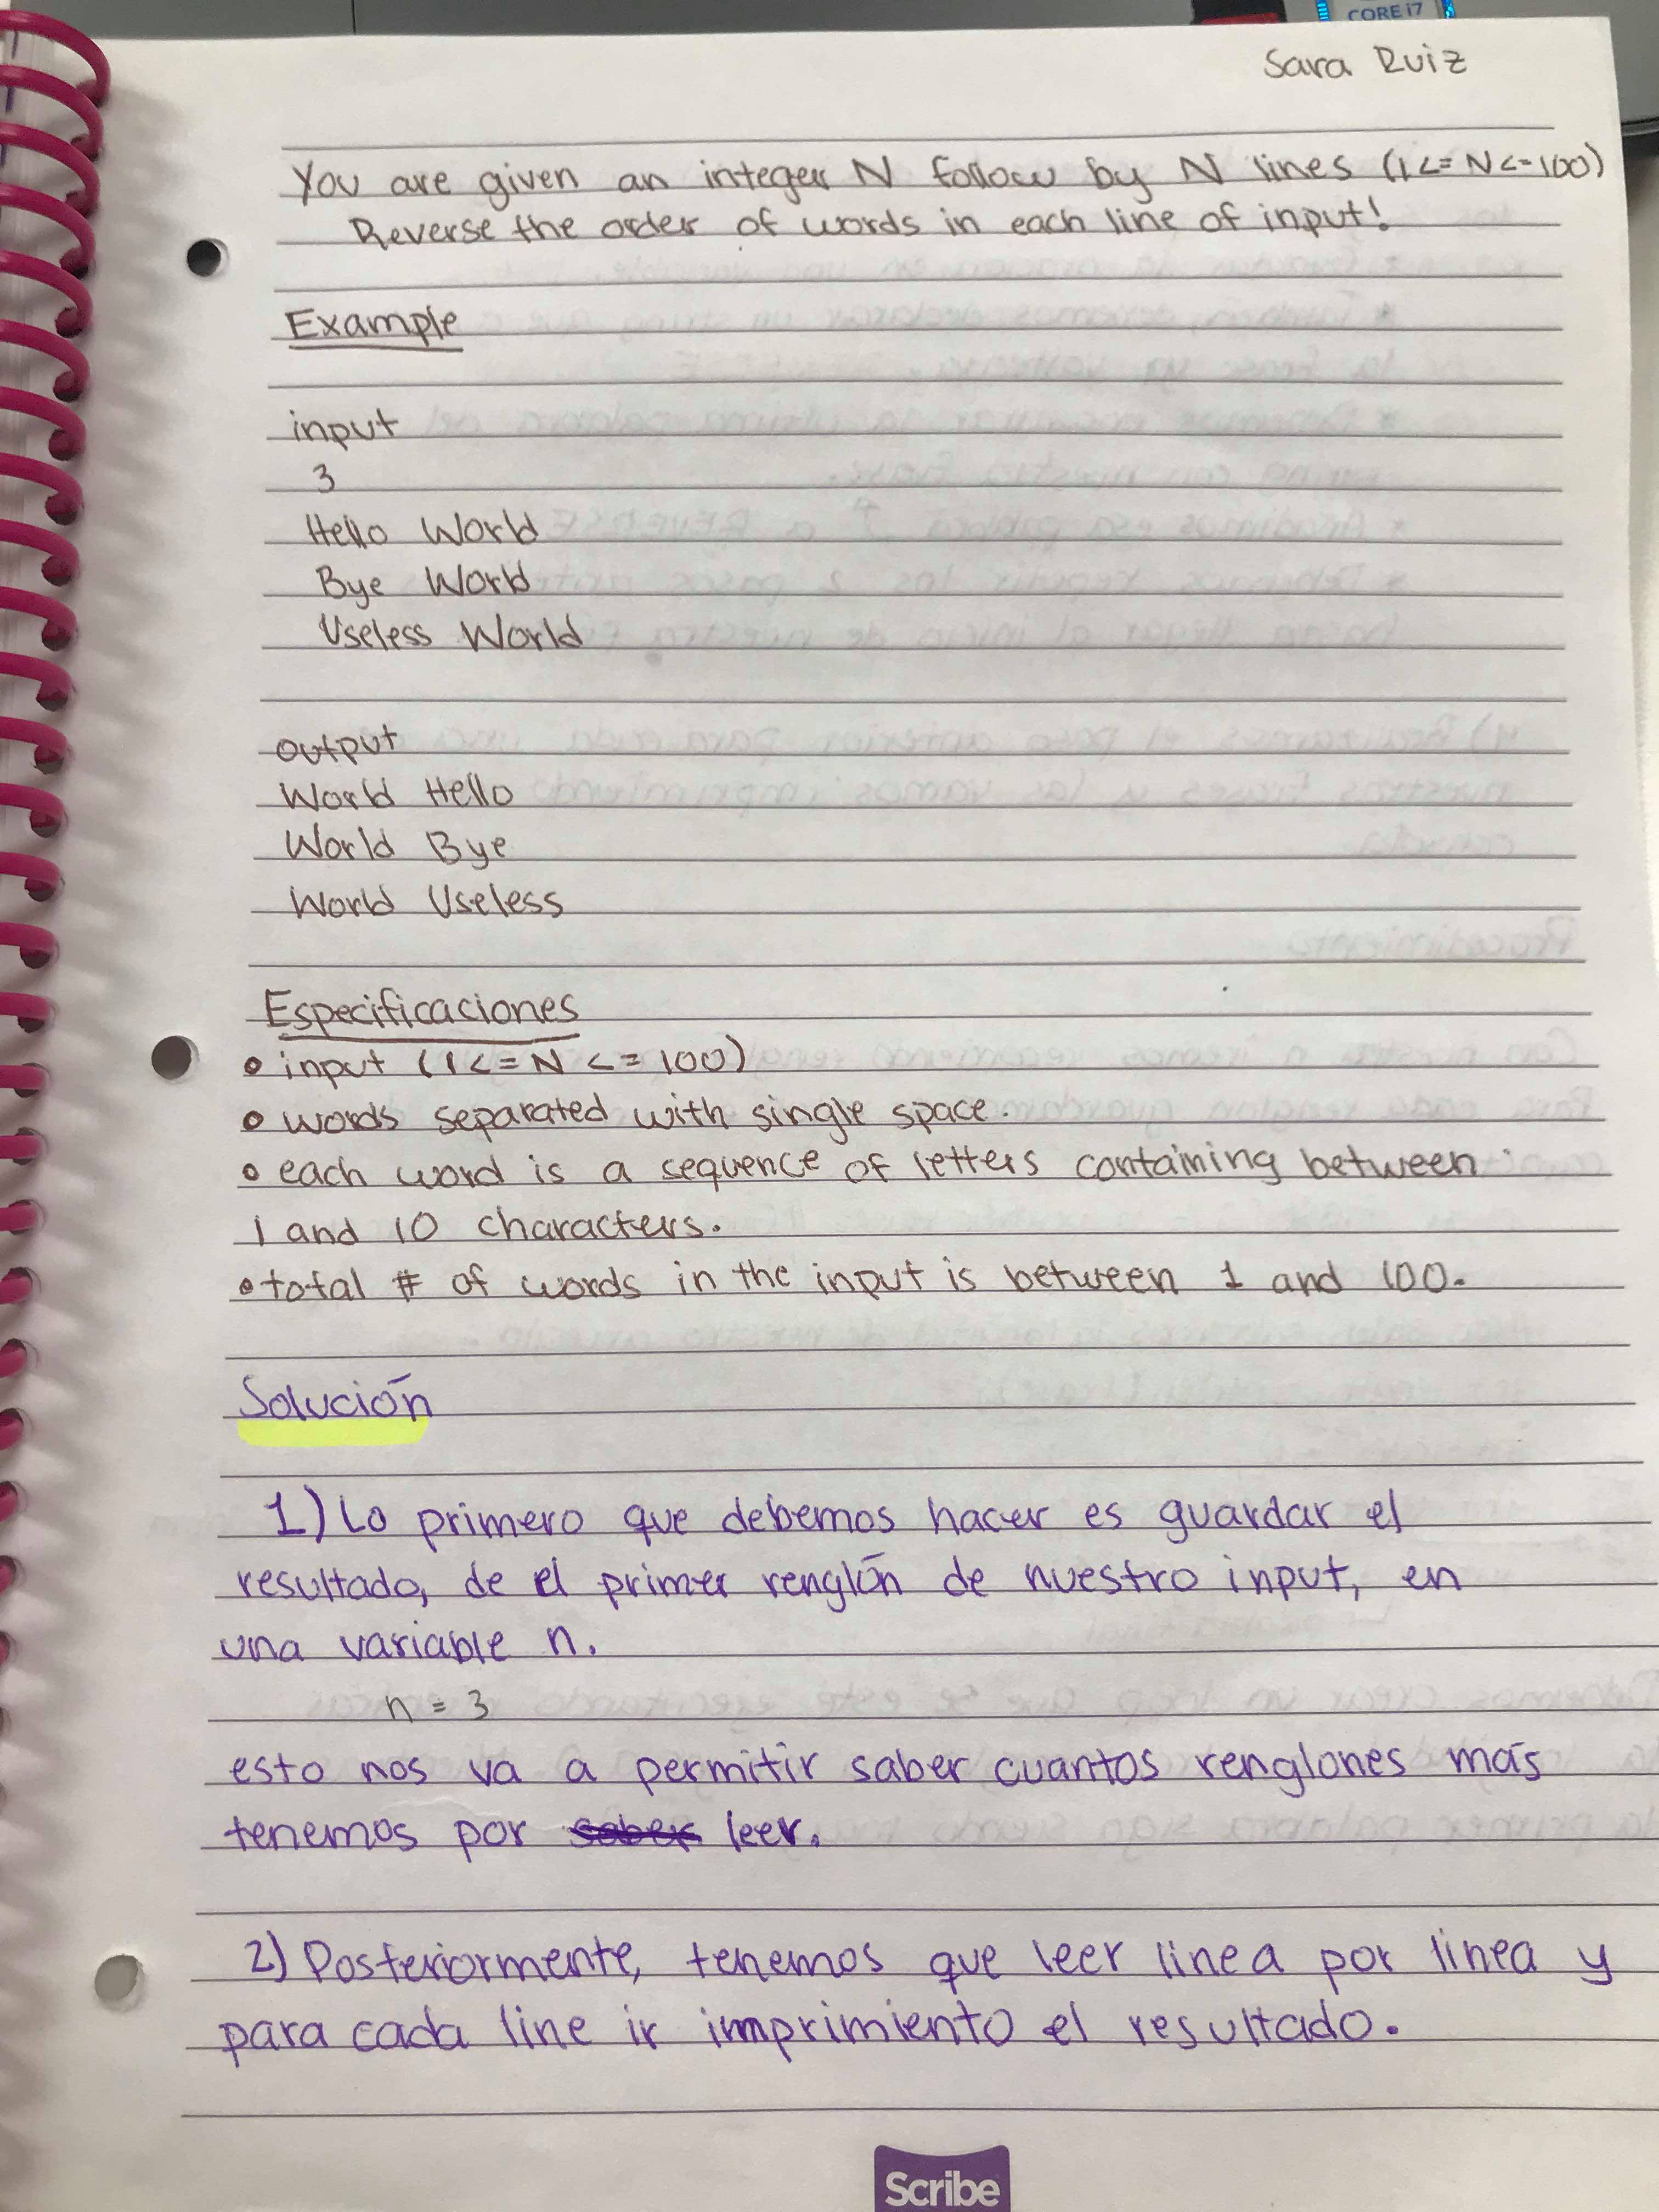 CORE i7
Sara Ruiz
You are given an integer N follow by N lines (1<=N<=100)
Reverse the order of words in each line of input!
Example
input
3
Hello World
Bye World
Useless World
output
World Hello
World Bye
World Useless
Especificaciones
• input (1<=N<=100)
• words separated with single space.
• each word is a sequence of letters containing between
1 and 10 characters.
• total # of words in the input is between 1 and 100.
Solución
1) Lo primero que debemos hacer es guardar el
resultado, de el primer renglón de nuestro input, en
una variable n.
n = 3
esto nos va a permitir saber cuantos renglones más
tenemos por saber leer.
2) Posteriormente, tenemos que leer linea por linea y
para cada line ir imprimiento el resultado.
Scribe